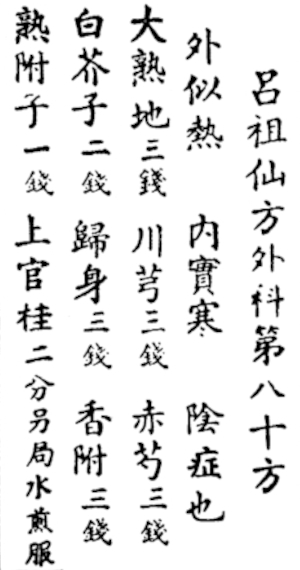 呂祖仙方外科第八十方
外似熱　內實寒　陰症也
大熟地三錢　川芎三錢　赤芍三錢
白芥子二錢　歸身三錢　香附三錢
熟附子一錢　上官桂二分另局水煎服